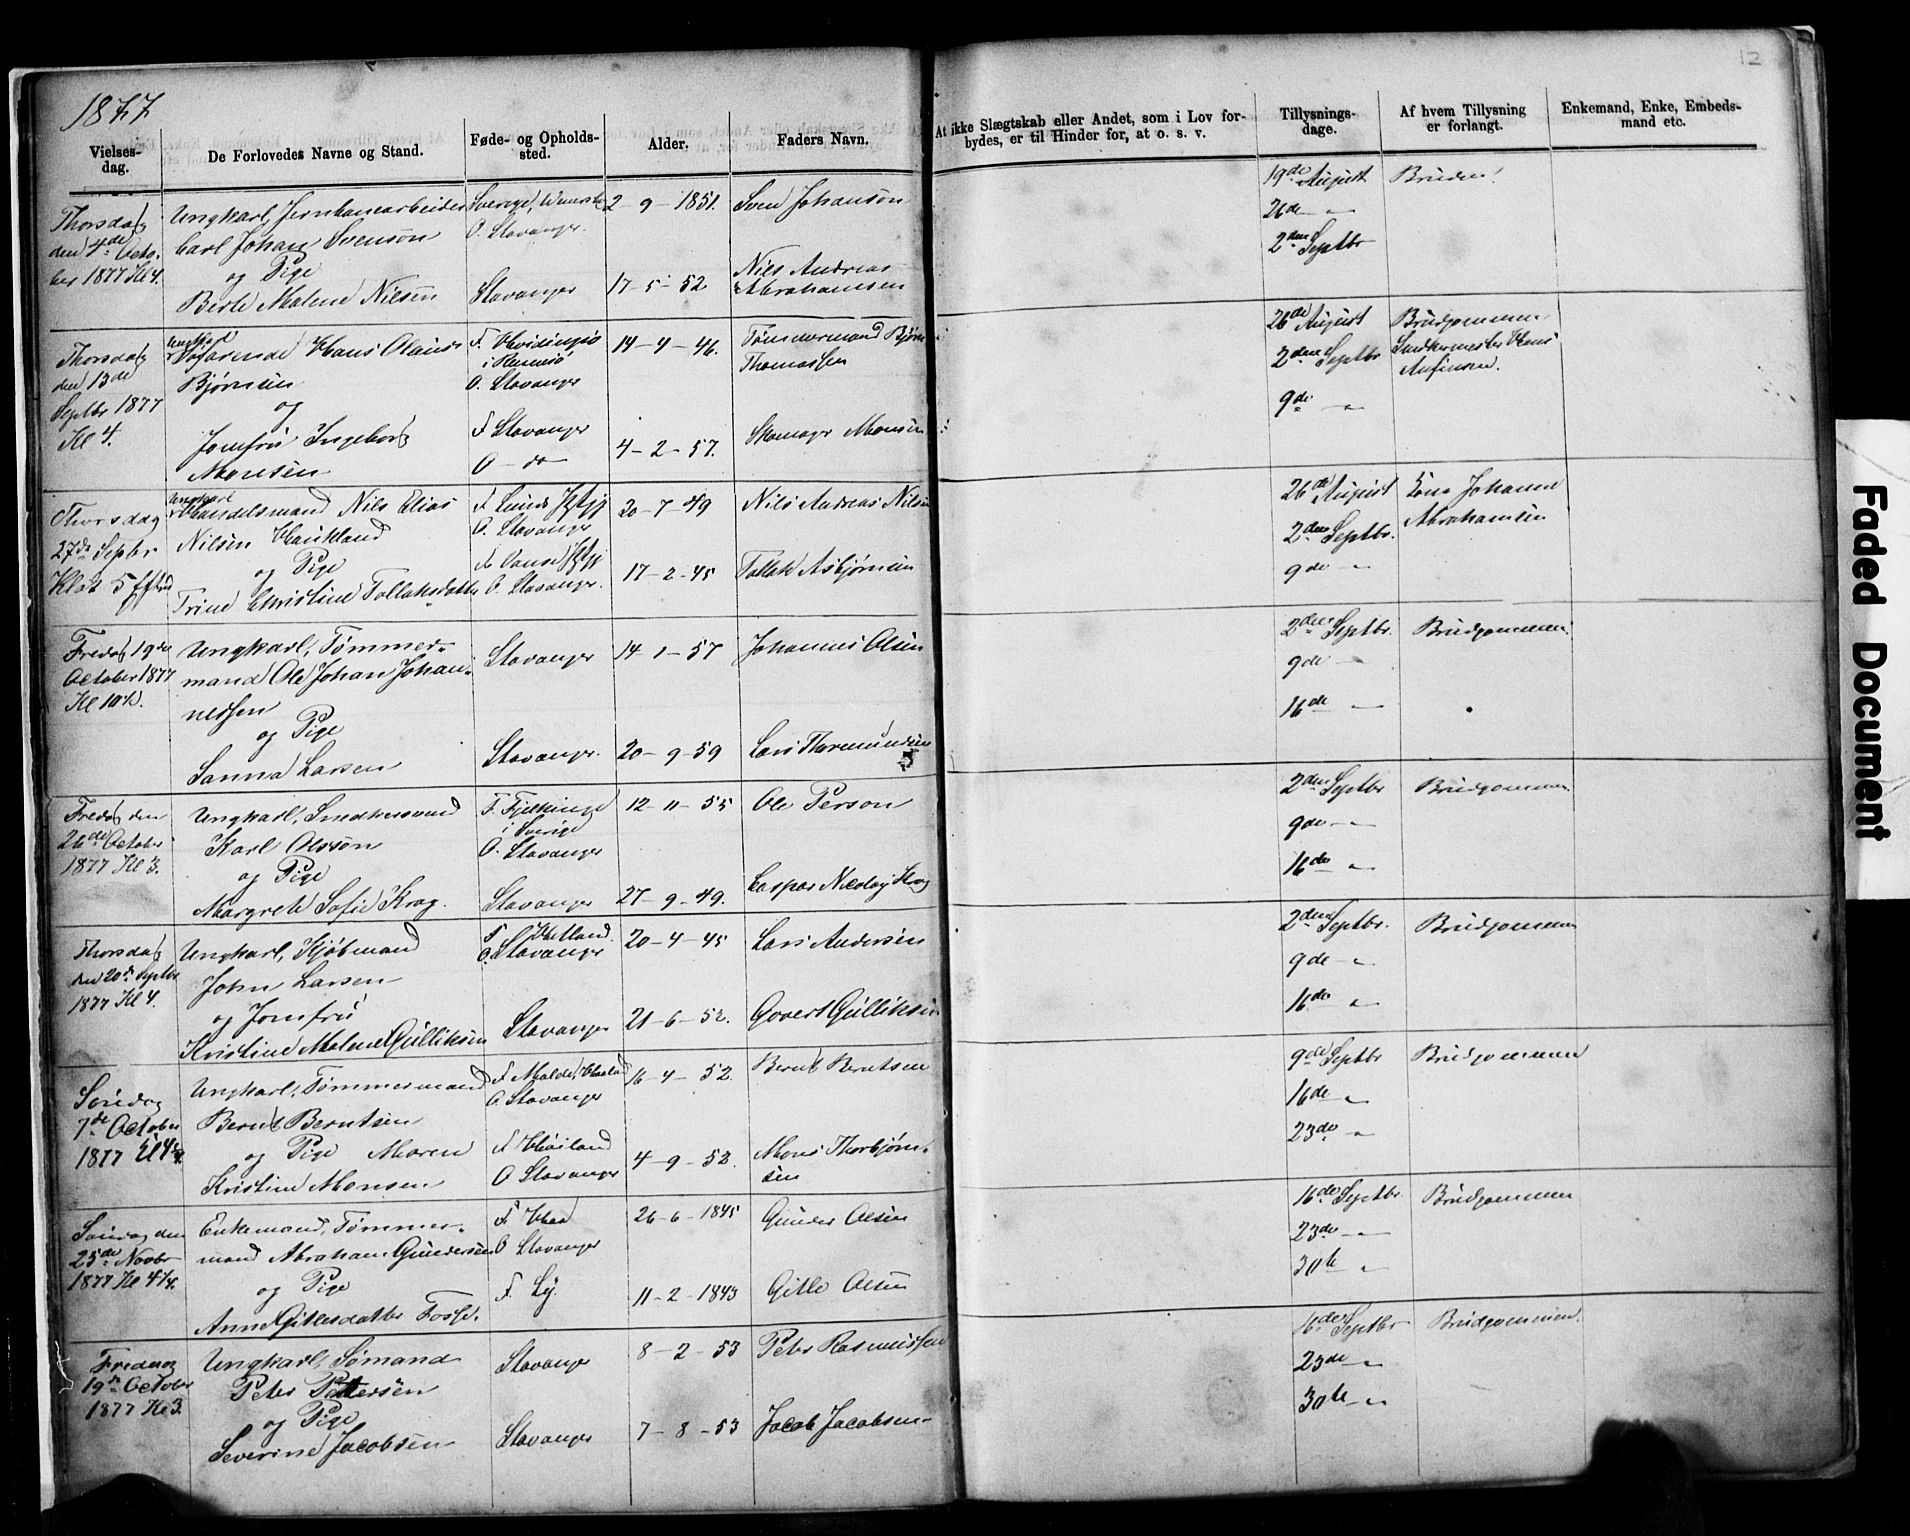 1877
12
Vielsesdag.
De Forlovedes Navne og Stand.
Føde- og Opholdssted.
Alder.
Faders Navn.
At ikke Slægtskab eller Andet, som i Lov forbydes, er til Hinder for, at o. s. v.
Tillysningsdage.
Af hvem Tillysning er forlangt.
Enkemand, Enke, Embedsmand etc.
Thorsdag
den 4de Octo-
ber 1877 Kl 4.
Ungkarl, Jernbanearbeider
Carl Johan Svensøn
og Pige
Berte Malene Nilsen
Sverige,
O. Stavanger.
Stavanger
2 - 9 - 1851.
17 - 5 - 52
Sven Johansøn
Nils Andreas
Abrahamsen
19de August
26de "
2den Septbr
Bruden.
Thorsdag
den 13de
Septbr 1877
Kl 4.
Ungkarl
Søfarende Hans Olaus
Bjørnsen
og
Jomfru Ingeborg
Monsen
F. Hvidingsø
i Rennesø
O. Stavanger
F. Stavanger
O - do -
14 - 4 - 46.
4 - 2 - 57.
Tømmermand Bjørn
Thomassen
Skomager Monsen
26de August
2den Septbr
9de "
Brudgommen
Snedkermester Hans
Aufinsen.
Thorsdag
27de Septbr
Klok 5 Efterm
Ungkarl
Handelsmand Nils Elias
Nilsen Haukland
og Pige
Trine Christine Tollaksdatter
F. Lunds Pgjj
O. Stavanger
O. Stavanger.
20 - 7 - 49
17 - 2 - 45
Nils Andreas Nilsen
Tollak Asbjørnsen
26de August
2den Septbr.
9de "
Lona Johanne
Abrahamsen
Fredag 19de
October 1877
Kl 10½.
Ungkarl, Tømmer-
mand Ole Johan Johan-
nessen
og Pige
Sanna Larsen
Stavanger
Stavanger.
14 - 1 - 57
20 - 9 - 59
Johannes Olsen
Lars Thormundsen
2den Septbr.
9de
16de "
Brudgommen.
Fredag den
26de October
1877 Kl 3.
Ungkarl, Snedkersvend
Karl Olsson
og Pige
Margrete Sofie Krag.
F. Fjelkinge
i Sverige
O. Stavanger
Stavanger
12 - 11 - 55
27 - 9 - 49.
Ole Person
Caspar Nicolay Krag
2den Septbr
9de "
16de "
Brudgommen
Thorsdag
den 20de Septbr
1877 Kl 4.
Ungkarl, Kjøbmand
John Larsen
og Jomfru
Kristine Malene Gulliksen
F. Hetland
O. Stavanger
Stavanger
20 - 4 - 45
21 - 6 - 52.
Lars Andersen
Govert Gulliksen
2den Septbr.
9de "
16de "
Brudgommen
Søndag
7de October
1877 Kl 4¼.
Ungkarl, Tømmermand
Bernt Berntsen
og Pige Maren
Kristine Monsen
F. Malde, Haaland
O. Stavanger
F. Høiland
O Stavanger
16 - 4 - 52.
4 - 9 - 52.
Bernt Berntsen
Mons Thorbjørn-
sen
9de Septbr
16de "
23de "
Brudgommen
Søndag den
25de Novbr
1877 Kl 4¼.
Enkemand, Tømmer-
mand Abraham Gundersen
og Pige
Anne Gitlesdatter Fosse.
F. Haa
O Stavanger
F. Ly.
26 - 6 - 1845
11 - 2 - 1843
Gunder Olsen
Gitle Olsen
16de Septbr.
23de "
30te "
Brudgommen
Fredag
19de October
1877 Kl 3.
Ungkarl, Sømand
Peter Pettersen
og Pige
Severine Jacobsen
Stavanger
Stavanger
8 - 2 - 53
7 - 8 - 53
Peter Rasmussen
Jacob Jacobsen
16de Septbr
23de "
30te "
Brudgommen.
Faded Document